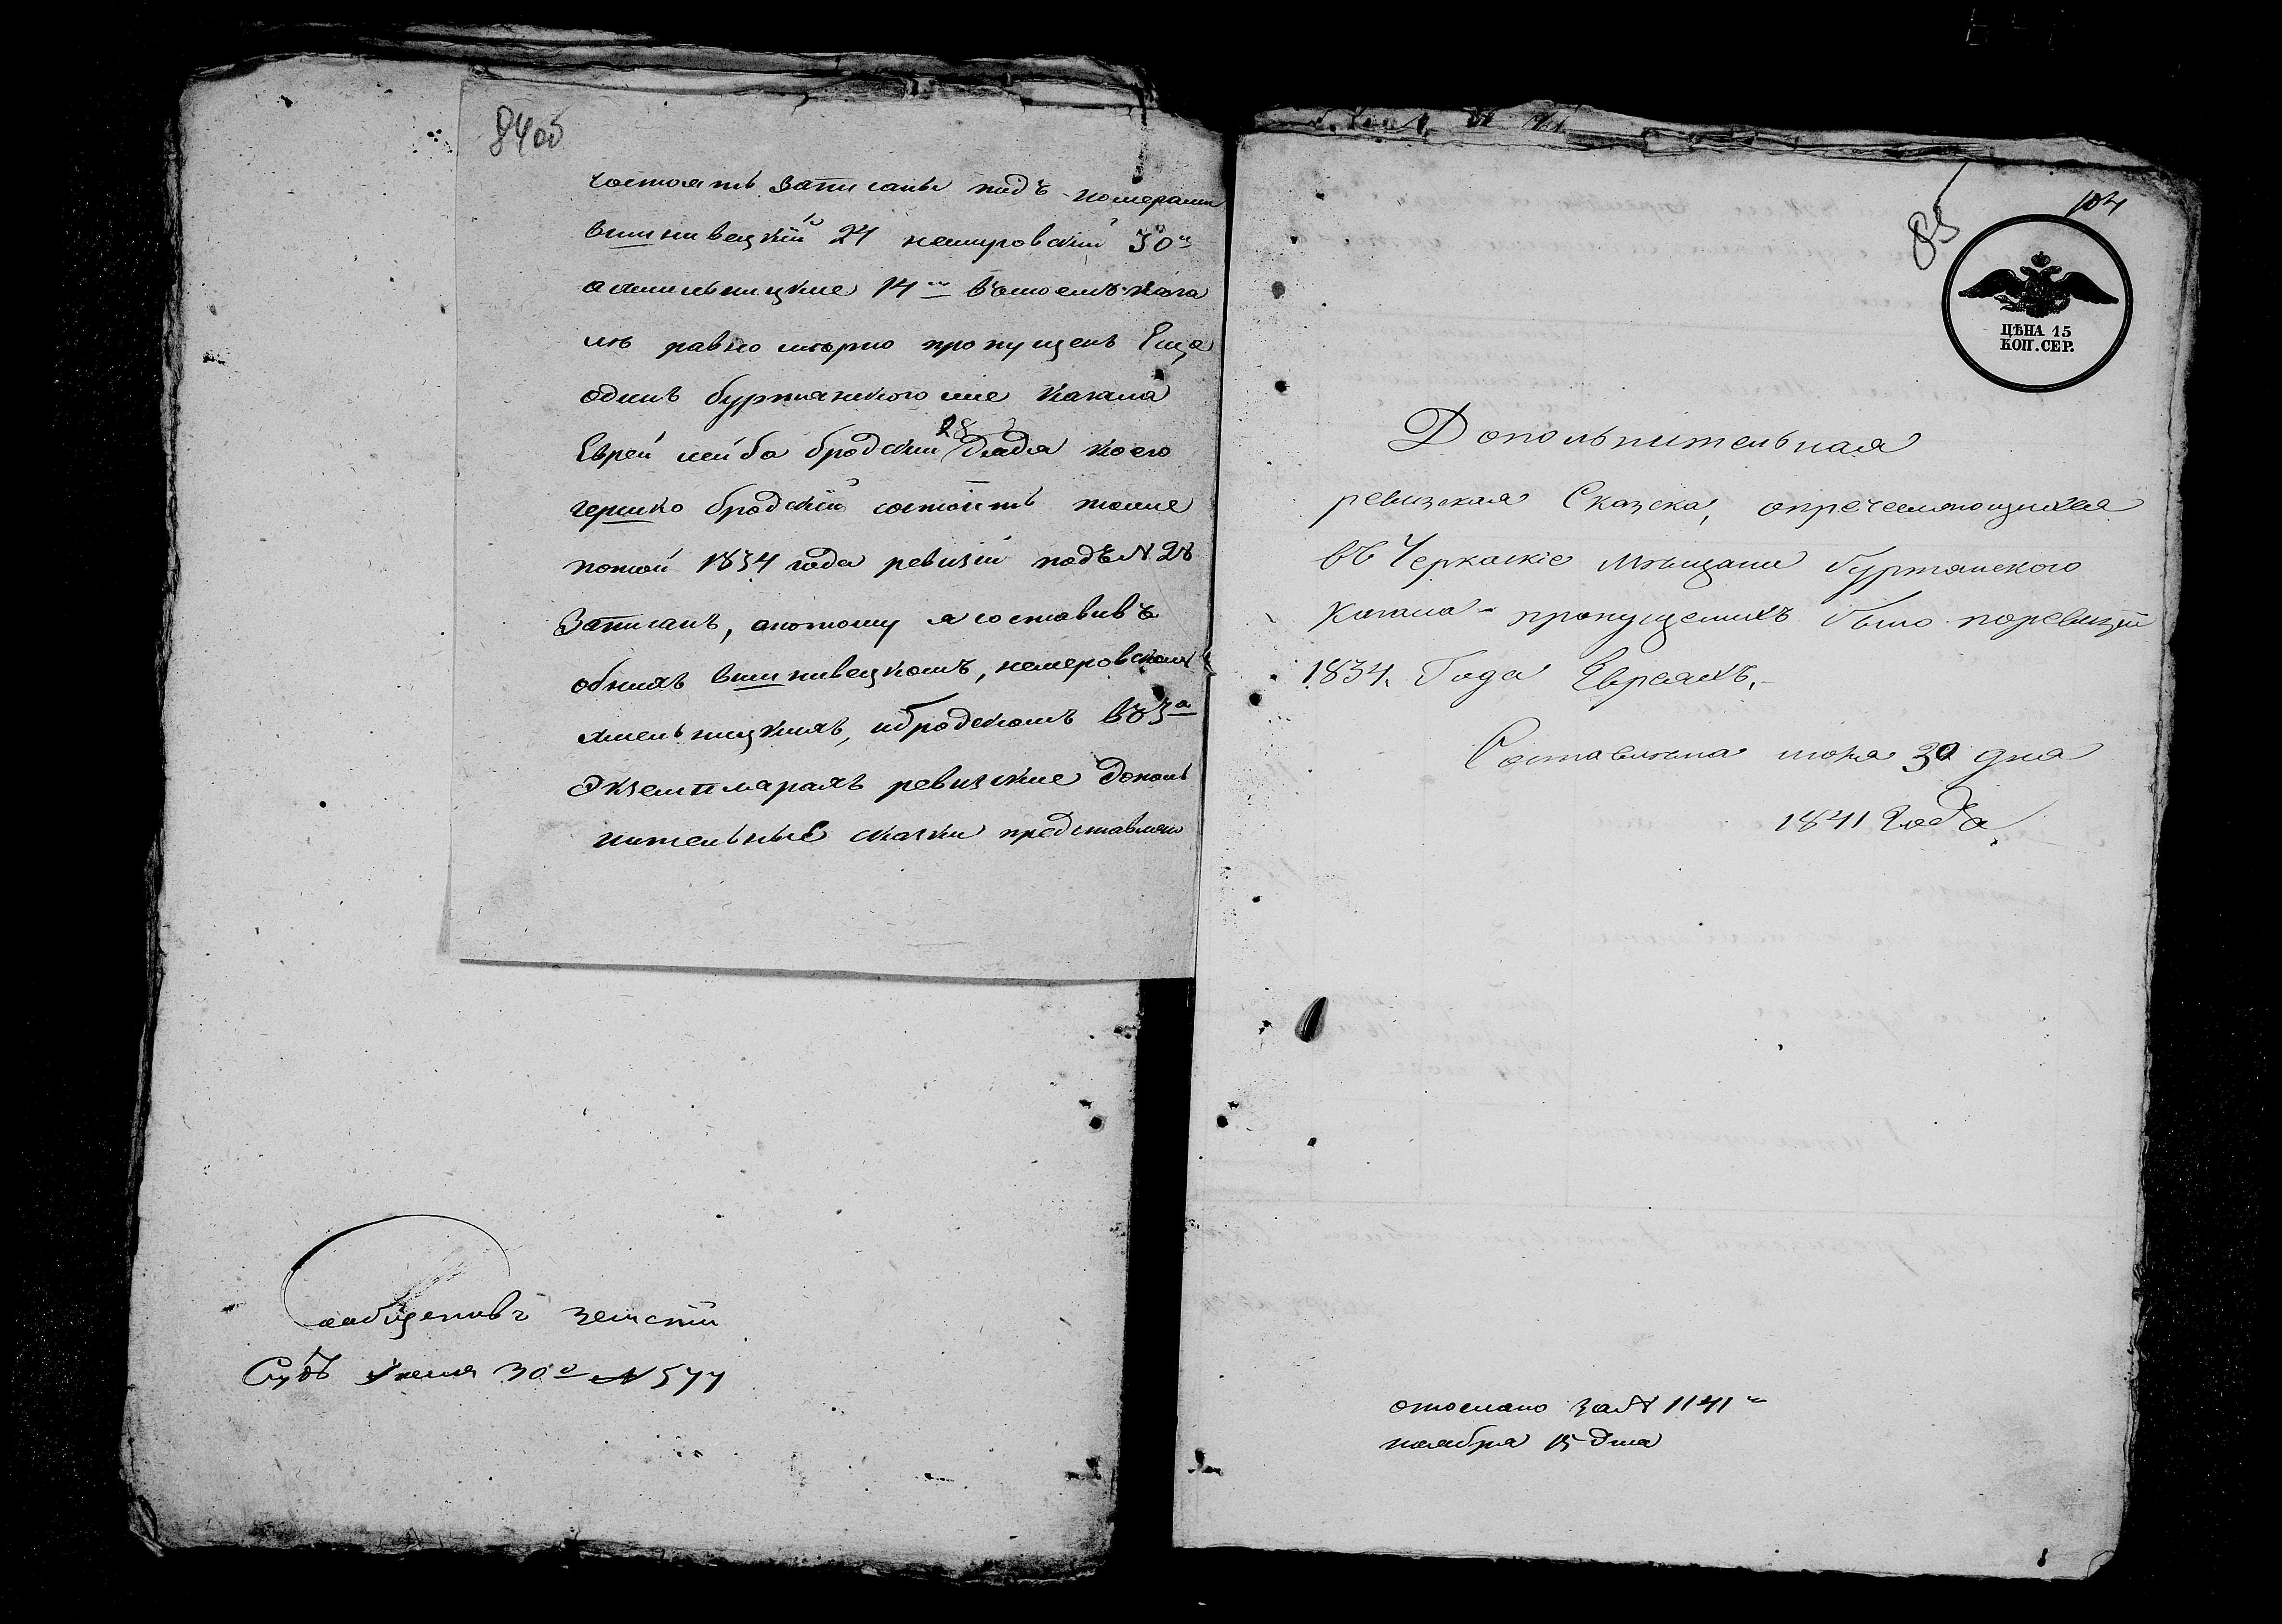 84 об
состоятъ записаны подъ номерами
вишнивецкій 24 немировскій 30й
а хмельницкие 14м въ томъ кага
лѣ равно мѣрно пропущенъ Еще
одинъ буртянского же кагала
Еврей лейба бродский дядя коего
28
гершко бродскій состоитъ тоже
по той 1834 года ревизіи подъ № 28
Записанъ, а потому я составивъ
обнихъ вишнивецкомъ, немеровскомъ
хмельницкихъ, и бродскомъ въ 3а
Экземплярахъ ревизские дополь
нительные сказки представляю
земскій
Судъ 30о № 577
85
104
ЦѢНА 15
КОП. СЕР.
Допольнительная
ревизская Сказска, опречесляющихся
въ Черкаскіе Мѣщани буртянского
Кагала пропущенихъ було поревизіи
1834. Года Евреяхъ.
Составлена июня 30 дня
1841 Года
отослано за № 1141м
ноября 15 дня